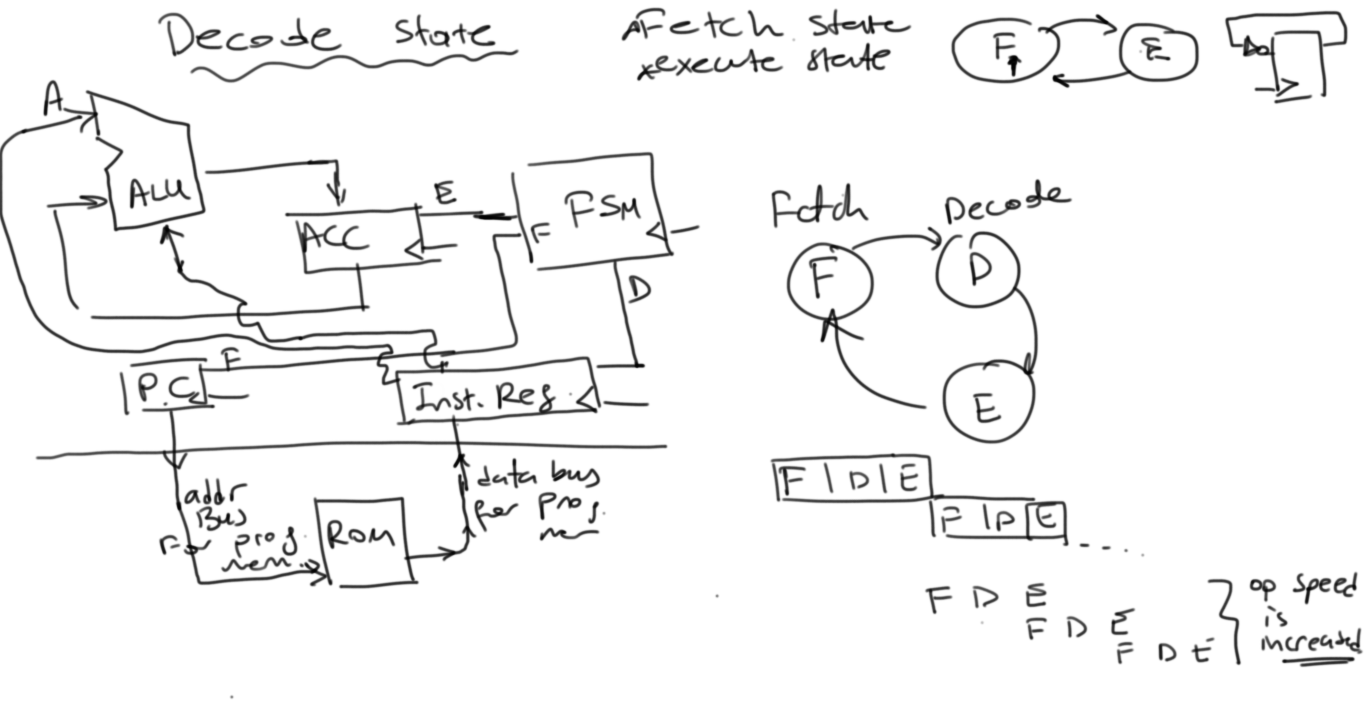 Decode State
Fetch state
execute state
F
E
Do
A
ALU
ACC
E
F
FSM
D
F
P.C
Inst. Reg
addr
Bus
For prog.
mem.
ROM
data bus
for prog.
mem
Fetch
Decode
F
D
E
F | D | E
F | D | E
F D E
F D E
F D E
op speed
is
increated